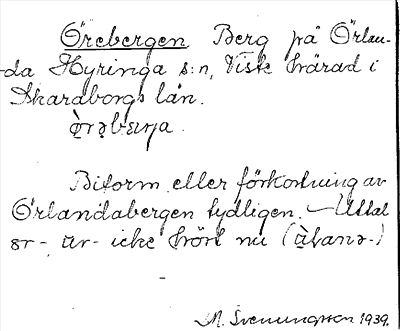 Örebergen Berg på Örlan-
da Hyringa s:n, Viste härad i
Skaraborgs län.
ö̀rəbærja.
Biform eller förkortning av
Örlandabergen tydligen. – Uttal
ör- är icke hört nu
M. Svenungsson 1939.